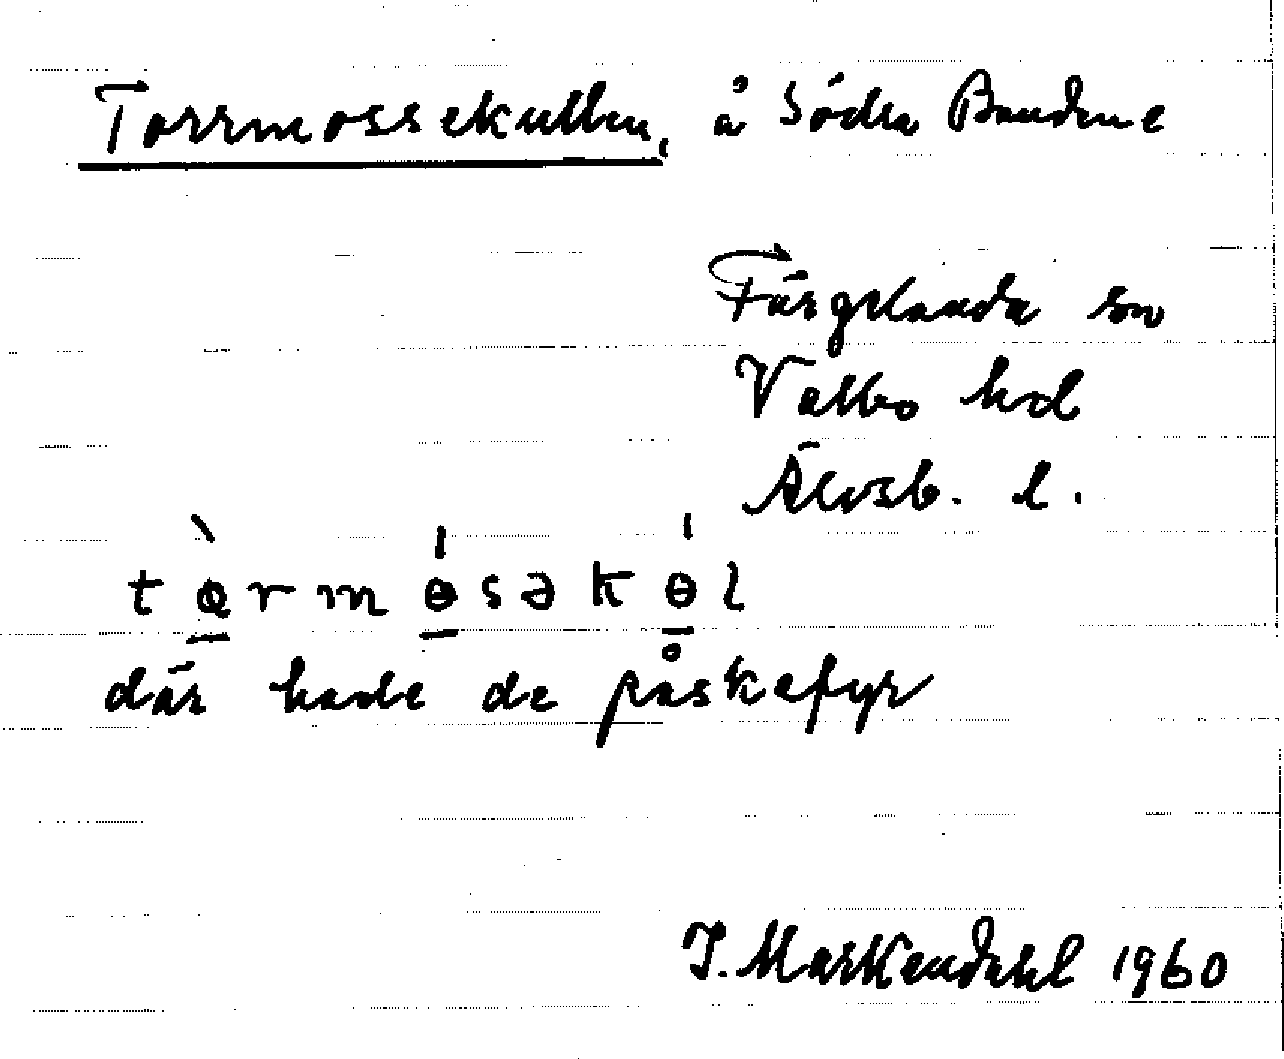 Torrmossekullen, å Södra Bandene
Färgelanda sn
Valbo hd
Älvsb. l.
tɵ̀rmɵ́səkɵ́l
där hade de påskefyr
I. Markendahl 1960